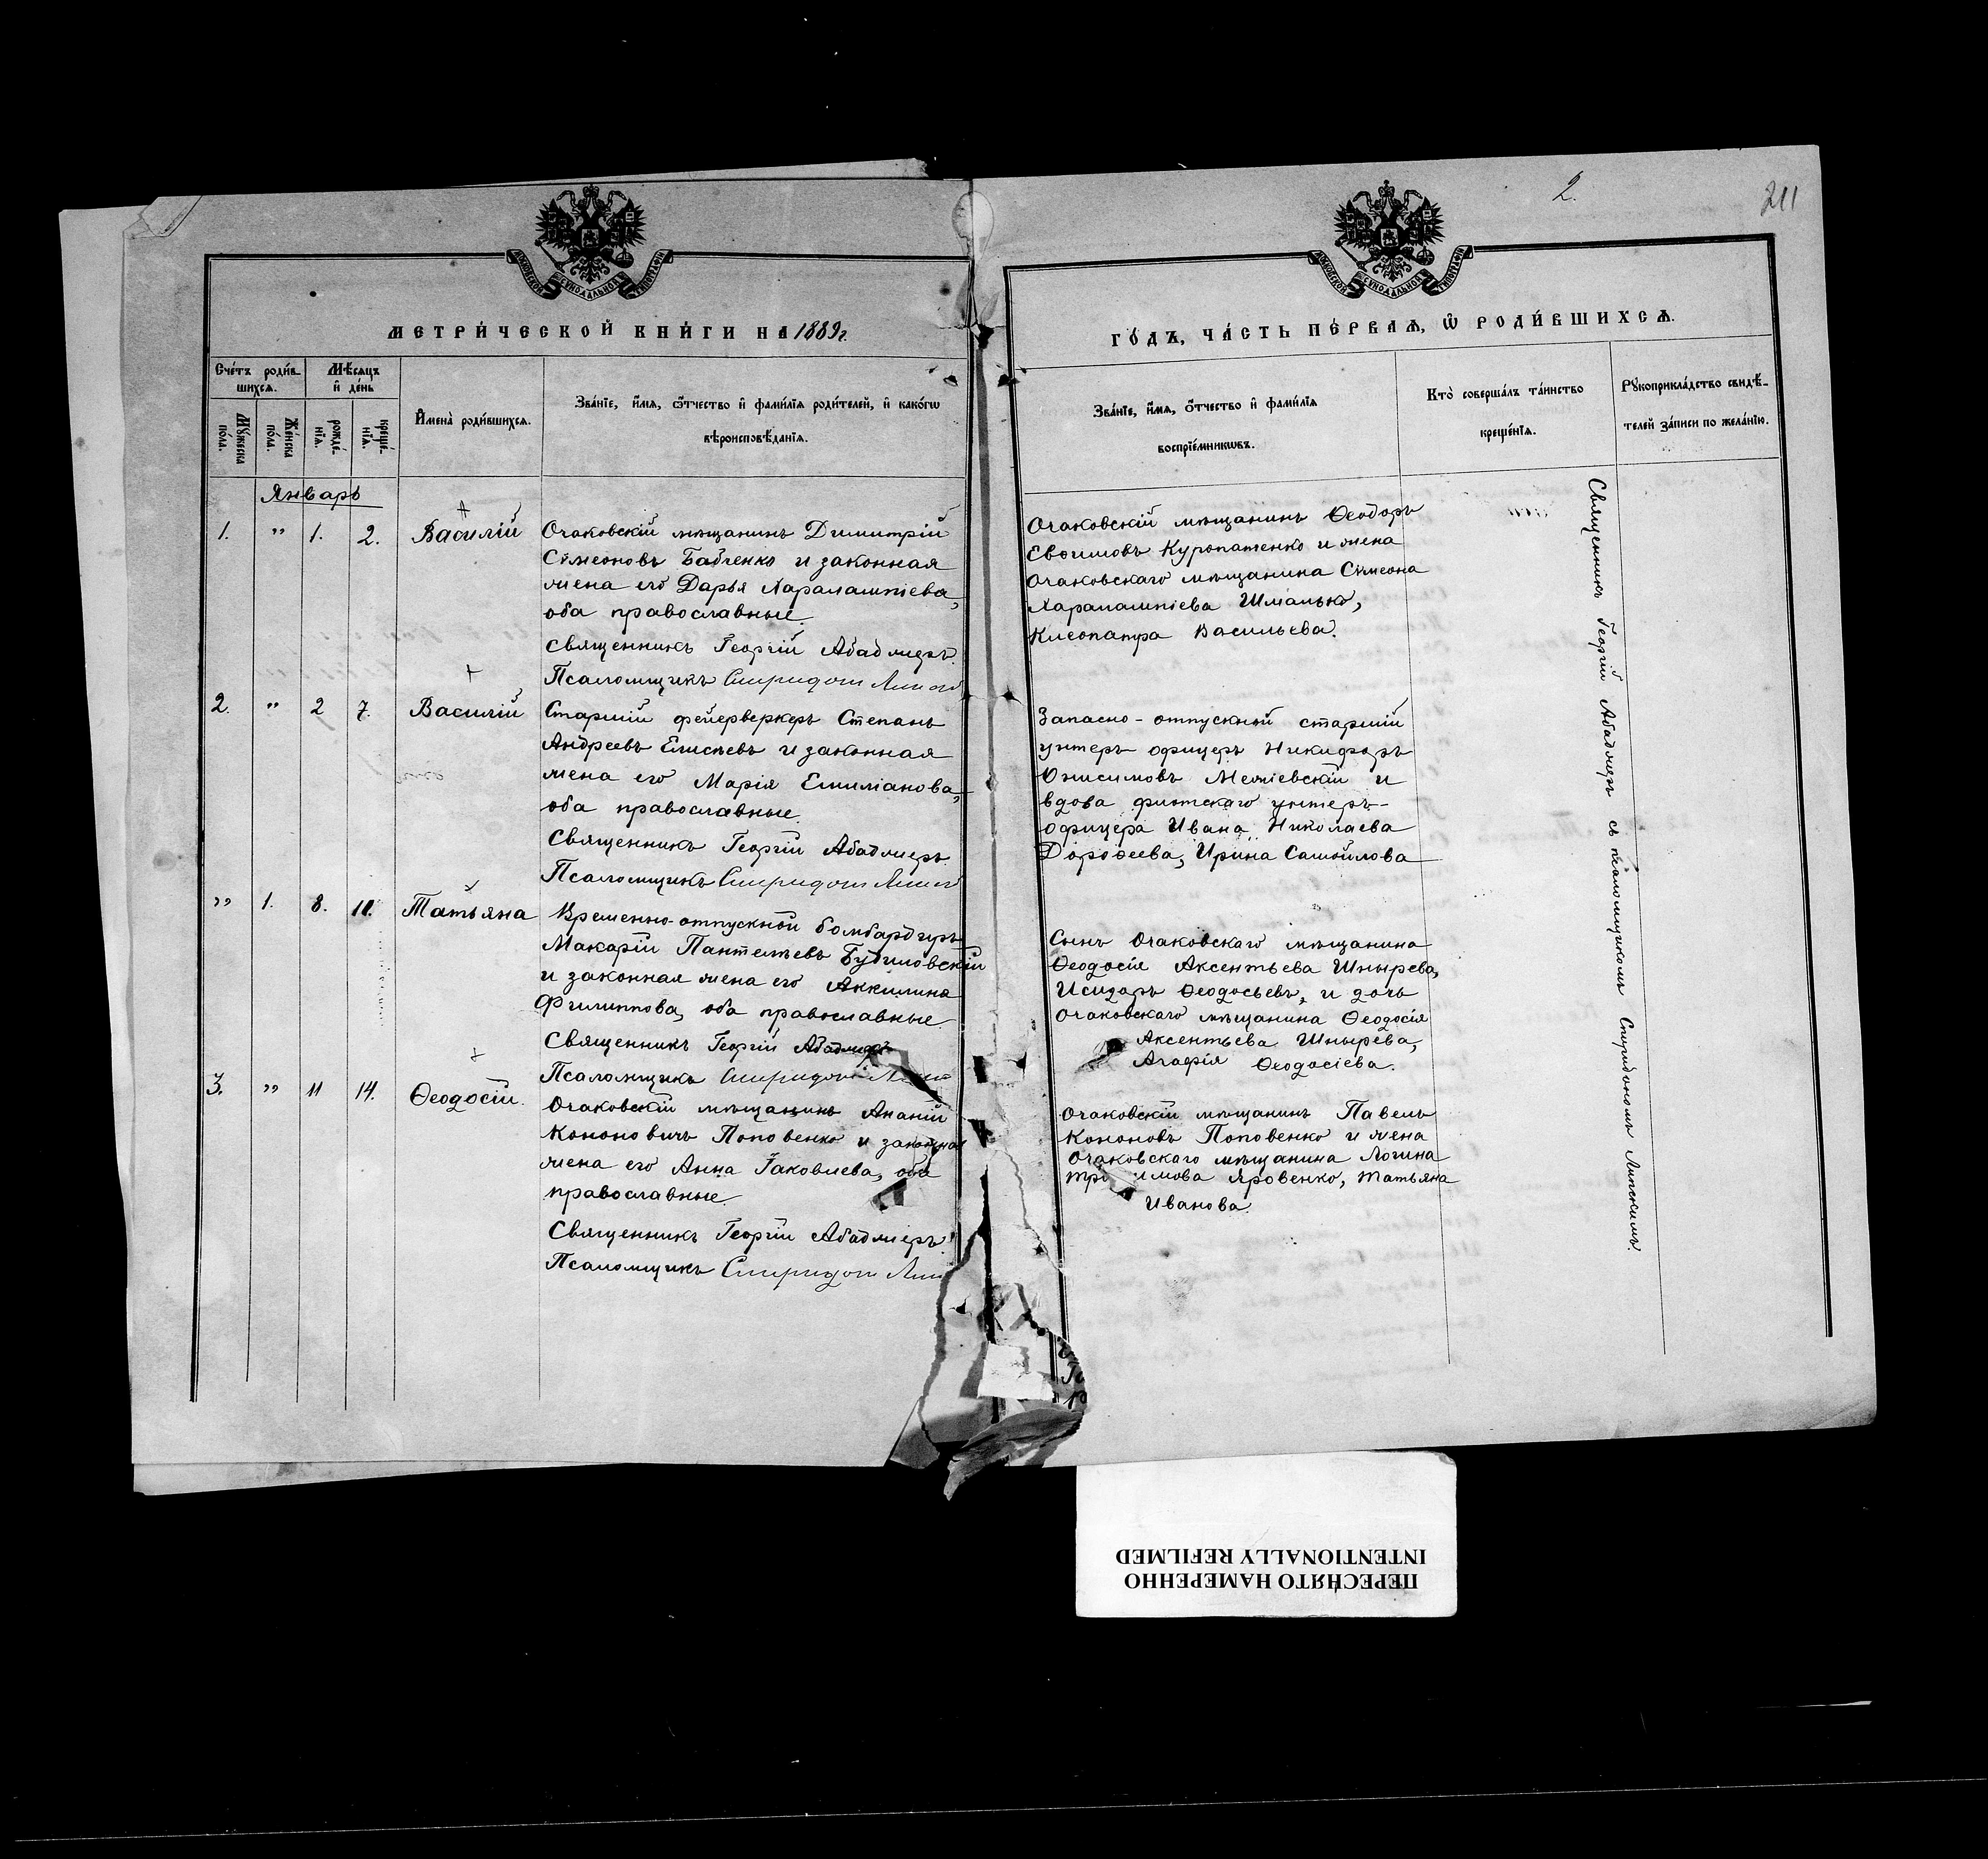 2.
211
МОСКОВСКОЙ СѴНОДАЛЬНОЙ ТИПОГРАФІИ
МОСКОВСКОЙ СѴНОДАЛЬНОЙ ТИПОГРАФІИ
МЕТРИ́ЧЕСКОЙ КНИ́ГИ НА 1889 г.
ГО́ДЪ, ЧА́СТЬ ПЕ́РВАѦ, Ѡ РОДИ́ВШИХСѦ.
Сче́тъ роди́в-
шихсѧ.
Мѣ́сѧцъ
и҆ де́нь
Мꙋ́жеска
по́ла.
Же́нска
по́ла.
рожде́-
нїѧ.
креще́-
нїѧ.
И҆мена̀ роди́вшихсѧ.
Зва́нїе, и҆́мѧ, ѻ҆́тчество и҆ фами́лїѧ роди́телей, и҆ како́гѡ
вѣроисповѣ́данїѧ.
Зва́нїе, и҆́мѧ, ѻ҆́тчество и҆ фами́лїѧ
воспрїе́мникѡвъ.
Кто̀ соверша́лъ та́инство
креще́нїѧ.
Рꙋкоприкла́дство свидѣ́-
телей за́писи по жела́нїю.
Январь
1. " 1. 2. Василій
Очаковскій мѣщанинъ Димитрій
Сѵмеоновъ Бабченко и законная
жена его Дарья Харалампіева,
оба православные.
Священникъ Георгій Абаджеръ.
Псаломщикъ Спиридонъ
Очаковскій мѣщанинъ Ѳеодоръ
Евѳимовъ Куропатенко и жена
Очаковскаго мѣщанина Сѵмеона
Харалампіева Шмалько,
Клеопатра Васильева.
2. " 2 7. Василій
Старшій фейерверкеръ Степанъ
Андреевъ Елисѣевъ и законная
жена его Марія Емиліанова,
оба православные.
Священникъ Георгій Абаджеръ
Псаломщикъ Спиридонъ
Запасно-отпускной старшій
унтеръ офицеръ Никифоръ
Онисимовъ Межіевскій и
вдова флотскаго унтеръ-
офицера Ивана Николаева
Дороѳеева, Ирина Самойлова
" 1. 8. Татьяна
Временно-отпускной бомбардиръ
Макарій Пантелѣевъ Будиловскій
и законная жена его Аккилина
Филиппова, оба православные.
Священникъ Георгій Абаджеръ
Псаломщикъ Спиридонъ
Сынъ Очаковскаго мѣщанина
Ѳеодосія Аксентьева Шнырева,
Исидоръ Ѳеодосьевъ, и дочь
Очаковскаго мѣщанина Ѳеодосія
Аксентьева Шнырева,
Агафія Ѳеодосіева.
3. " 11 14. Ѳеодосій.
Очаковскій мѣщанинъ Ананій
Кононовичъ Поповенко и законная
жена его Анна Іаковлева, оба
православные.
Священникъ Георгій Абаджеръ.
Псаломщикъ Спиридонъ
Очаковскій мѣщанинъ Павелъ
Кононовъ Поповенко и жена
Очаковскаго мѣщанина Логина
Яровенко, Татьяна
Иванова.
Священникъ Георгій Абаджеръ съ псаломщикомъ Спиридономъ Липскимъ.
ПЕРЕСНЯТО НАМЕРЕННО
INTENTIONALLY REFILMED